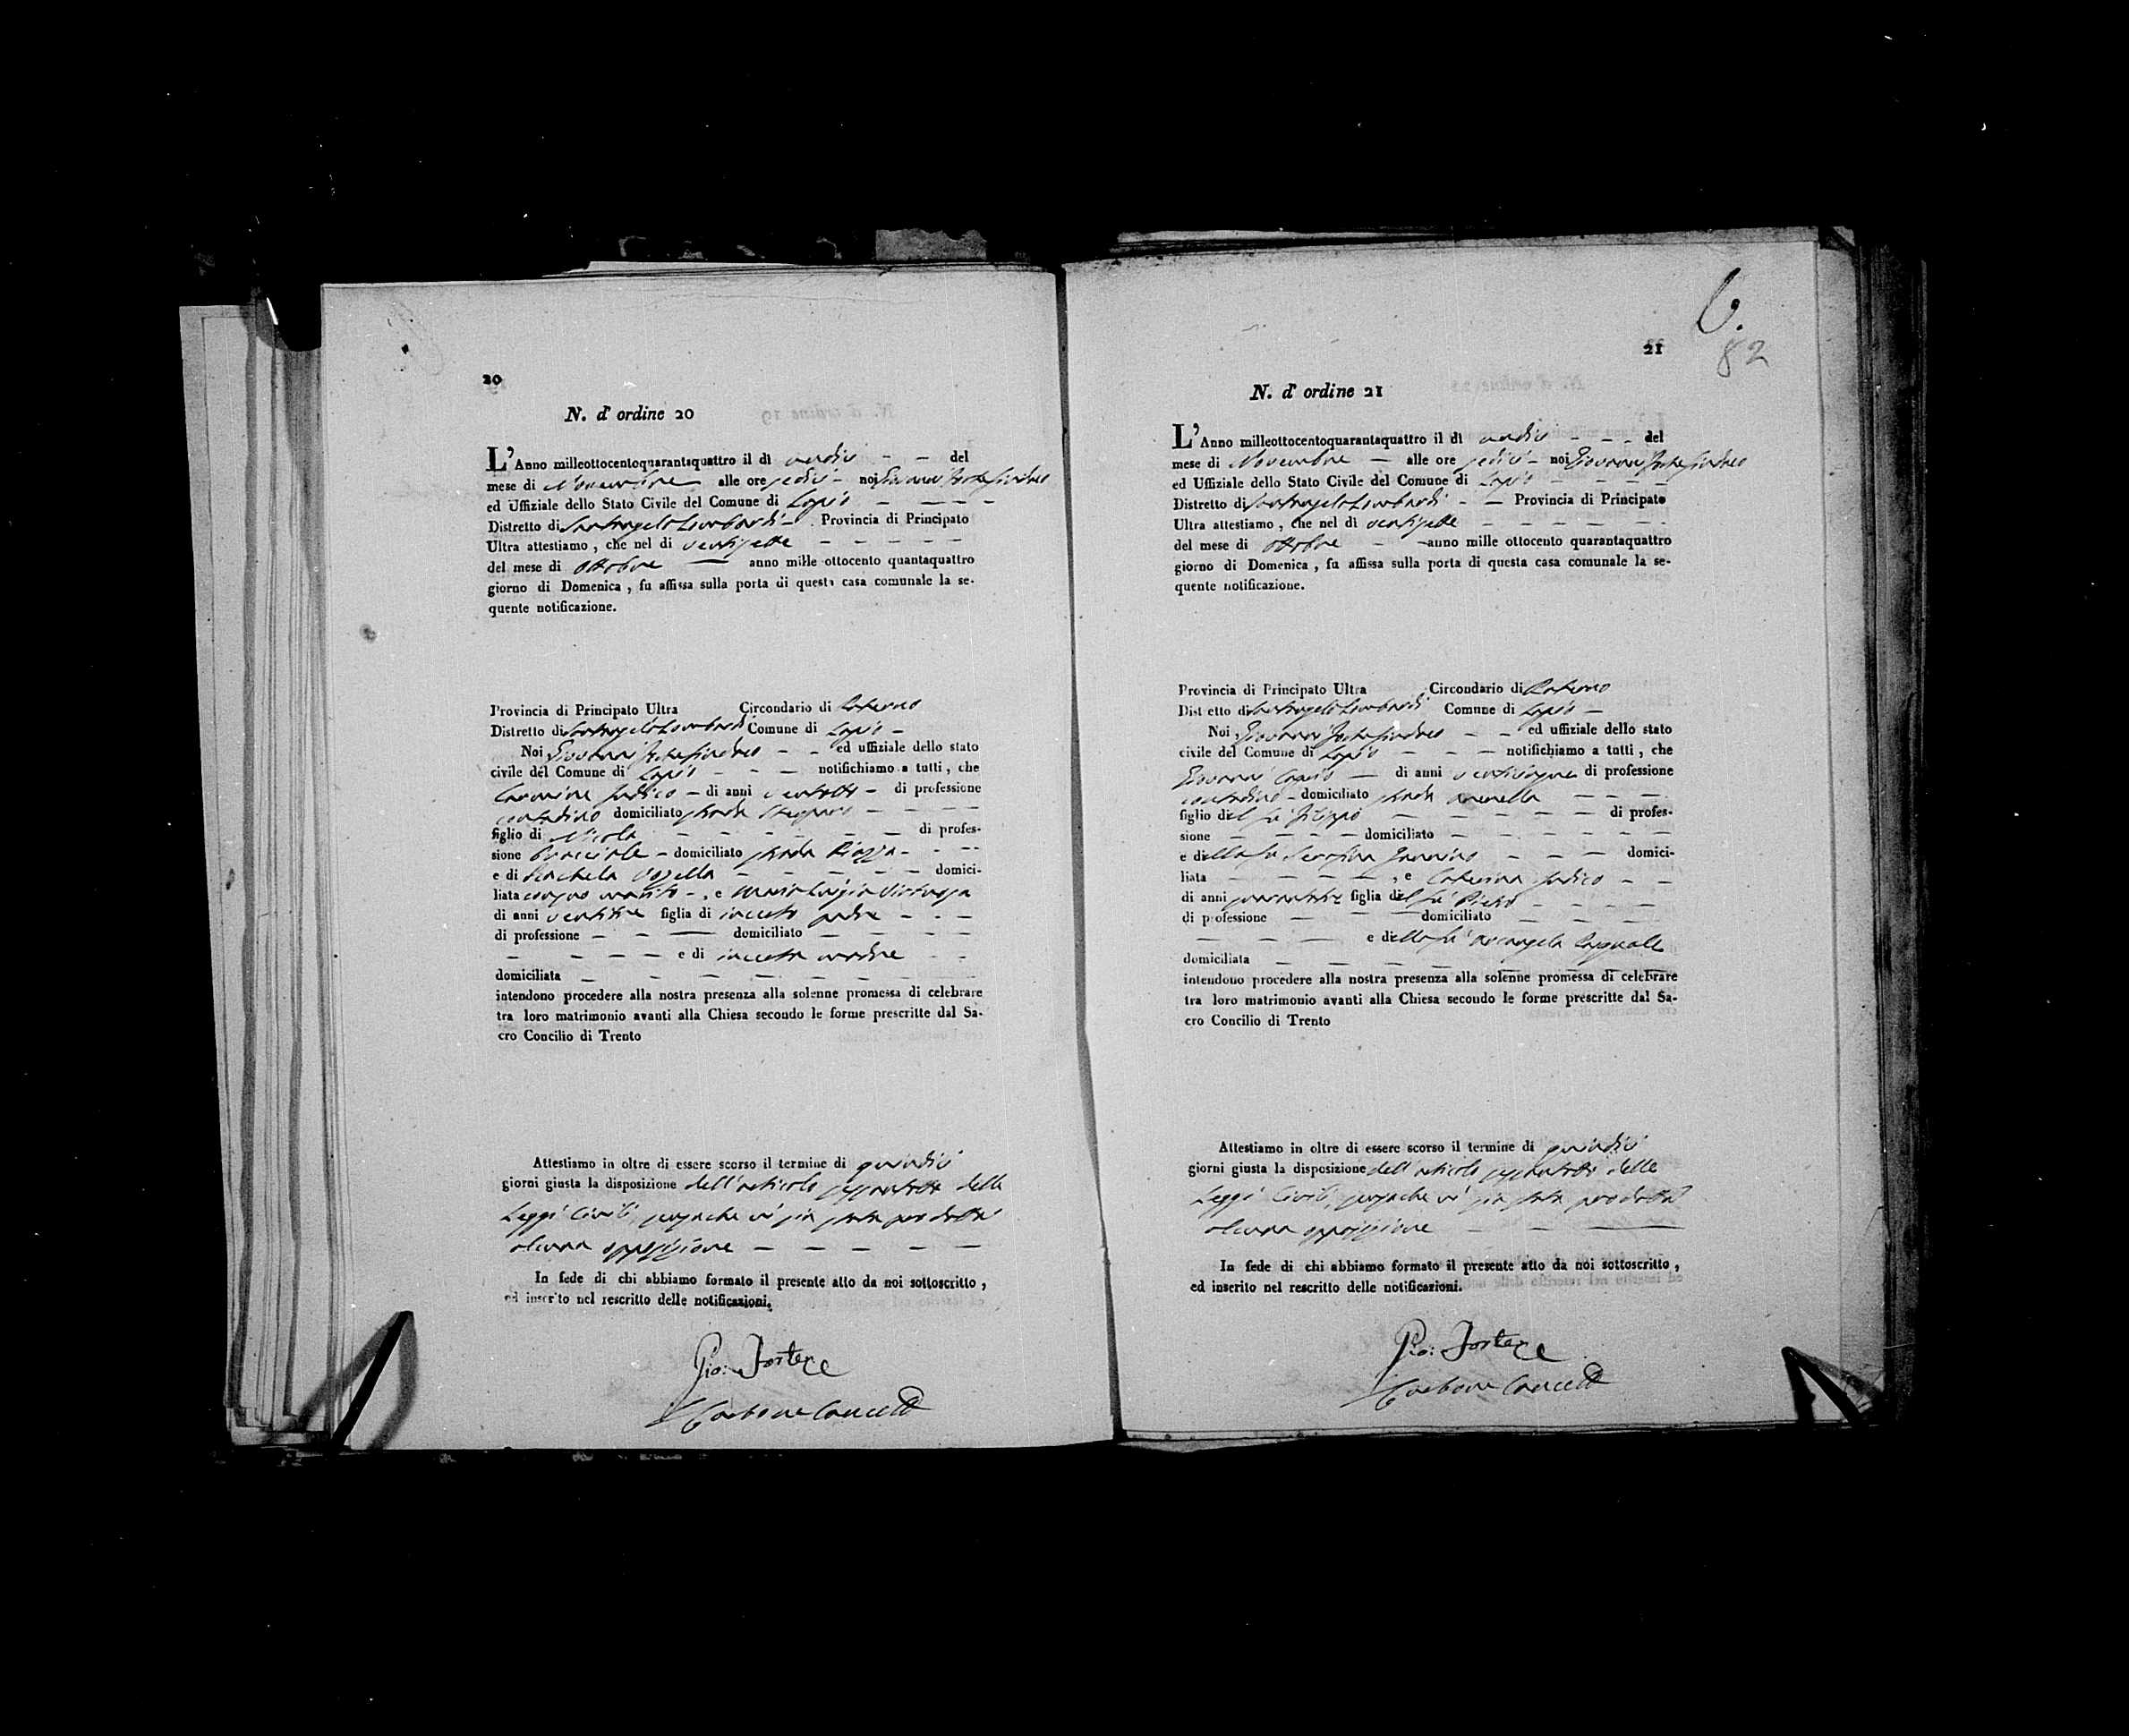 20
N. d' ordine 20
L' Anno milleottocentoquarantaquattro il dì undici - - del
mese di Novembre alle ore sedici - noi Giovanni Forte Sindaco
ed Uffiziale dello Stato Civile del Comune di Lapio - - - -
Distretto di Santangelo Lombardi - Provincia di Principato
Ultra attestiamo , che nel di ventisette - - - - -
del mese di Ottobre — anno mille ottocento quantaquattro
giorno di Domenica , fu affissa sulla porta di questa casa comunale la se-
quente notificazione.
Provincia di Principato Ultra Circondario di Paterno
Distretto di Santangelo Lombardi Comune di Lapio -
Noi Giovanni Forte Sindaco - - ed uffiziale dello stato
civile del Comune di Lapio - - — notifichiamo a tutti , che
Carmine Iudico - di anni ventotto - di professione
contadino domiciliato strada - - - -
figlio di Nicola - - - - - - di profes-
sione bracciale - domiciliato strada Piazza - - --
e di Rachela Vozzella - - - - - domici-
liata corpus marito - , e Maria Luigia
di anni ventitre figlia di incerto padre - - -
di professione - - — domiciliato - - - -
- - - - e di incerta madre - -
domiciliata - - - - - - -
intendono procedere alla nostra presenza alla solenne promessa di celebrare
tra loro matrimonio avanti alla Chiesa secondo le forme prescritte dal Sa-
cro Concilio di Trento
Attestiamo in oltre di essere scorso il termine di quindici
giorni giusta la disposizione dell'articolo settantotto delle
Leggi Civili, senza che vi sia stata prodotta
alcuna opposizione - - - - -
In fede di chi abbiamo formato il presente atto da noi sottoscritto ,
ed inserito nel rescritto delle notificazioni.
Gio: Forte
6.
82
21
N. d' ordine 21
L' Anno milleottocentoquarantaquattro il dì undici - - - del
mese di Novembre - alle ore sedici - noi Giovanni Forte Sindaco
ed Uffiziale dello Stato Civile del Comune di Lapio - - - -
Distretto di Santangelo Lombardi - - Provincia di Principato
Ultra attestiamo , che nel dì ventisette - - - - - -
del mese di Ottobre - - anno mille ottocento quarantaquattro
giorno di Domenica , fu affissa sulla porta di questa casa comunale la se-
quente notificazione.
Provincia di Principato Ultra Circondario di Paterno
Distretto di Santangelo Lombardi Comune di Lapio -
Noi Giovanni Forte Sindaco - - ed uffiziale dello stato
civile del Comune di Lapio - - - notifichiamo a tutti , che
Giovanni - di anni venticinque di professione
contadino - domiciliato strada - - -
figlio del fu Filippo - - - - - di profes-
sione - - - - domiciliato - - - - - -
e della fu Serafina - - - domici-
liata - - - - , e Caterina Iudico - -
di anni figlia del fu Pietro - - - -
di professione - - - domiciliato - - -
- - - e della fu Arcangela
domiciliata - - - - - - -
intendono procedere alla nostra presenza alla solenne promessa di celebrare
tra loro matrimonio avanti alla Chiesa secondo le forme prescritte dal Sa-
cro Concilio di Trento
Attestiamo in oltre di essere scorso il termine di quindici
giorni giusta la disposizione dell'articolo settantotto delle
Leggi Civili, senza che vi sia stata prodotta
alcuna opposizione - - —
In fede di chi abbiamo formato il presente atto da noi sottoscritto ,
ed inserito nel rescritto delle notificazioni.
Gio: Forte